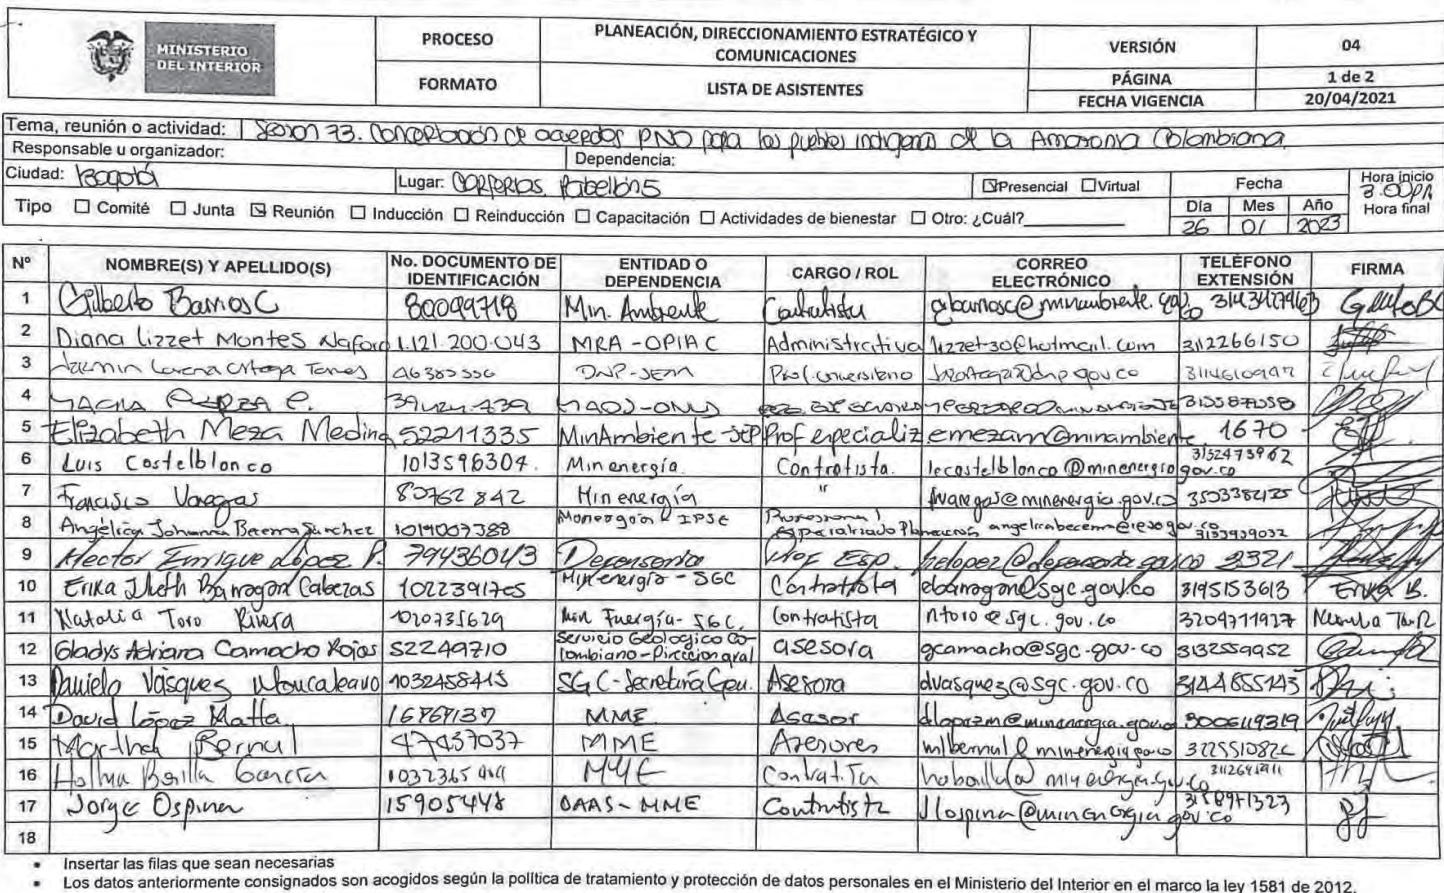 MINISTERIO
DEL INTERIOR
PROCESO
PLANEACIÓN, DIRECCIONAMIENTO ESTRATÉGICO Y
COMUNICACIONES
VERSIÓN
04
FORMATO
LISTA DE ASISTENTES
PÁGINA
1 de 2
FECHA VIGENCIA
20/04/2021
Tema, reunión o actividad: Sesion 73. Concertación de acuerdos PND para los pueblos indigenas de la Amazonia Colombiana
Responsable u organizador:
Dependencia:
Ciudad: Bogotá
Lugar: Corferias, Pabellón 5
Presencial Virtual
Fecha
Hora inicio
3:00PM
Hora final
Tipo Comité Junta Reunión Inducción Reinducción Capacitación Actividades de bienestar Otro: ¿Cuál?
Día Mes Año
26 01 2023
N° NOMBRE(S) Y APELLIDO(S) No. DOCUMENTO DE IDENTIFICACIÓN ENTIDAD O DEPENDENCIA CARGO / ROL CORREO ELECTRÓNICO TELÉFONO EXTENSIÓN FIRMA
1 Gilberto Barrios C 80099718 Min. Ambiente Contratista
2 Diana Lizzet Montes 1.121.200.043 MRA-OPIAC Administrativa lizzet-30@hotmail.com 3112266150
3
4
5 Elizabeth Meza Medina 52211335 MinAmbiente - Prof especializ emezam@minambiente. 1670
6 Luis Castelblanco 1013596304. Minenergía. Contratista. lecastelblanco@minenergia.gov.co 3152473962
7 Francisco Vanegas 80762842 Minenergía " fvanegas@minenergia.gov.co 3503382125
8 Angélica Johanna Becerra Sanchez 1019007388 IPSE Profesional Especializado Planeación
9 Hector Enrique López P. 79436043 Defensoria Prof Esp. helopez@defensoria.gov.co 2321
10 Erika Barragan Cabezas 1022391705 Minenergía - SGC Contratista ebarragan@sgc.gov.co 3195153613 Erika B.
11 Natalia Toro Rivera 1020735629 Min Energía- SGC, Contratista ntoro@sgc.gov.co 3204711927
12 Gladys Adriana Camacho Rojas 52249710 Servicio Geologico Colombiano-Direccion gral asesora gcamacho@sgc.gov.co 3132559952
13 Daniela Vásquez 1032458415 SGC-Secretaría Gen. Asesora dvasquez@sgc.gov.co 3144855143
14 David López Matta MME Asesor
15 Martha Bernal 47437037 MME Asesores mlbernal@minenergia.gov.co
16 MME Contratista
17 Jorge Ospina 15905448 OAAS-MME Contratista jlospina@minenergia.gov.co 3158971323
18
Insertar las filas que sean necesarias
Los datos anteriormente consignados son acogidos según la política de tratamiento y protección de datos personales en el Ministerio del Interior en el marco la ley 1581 de 2012.